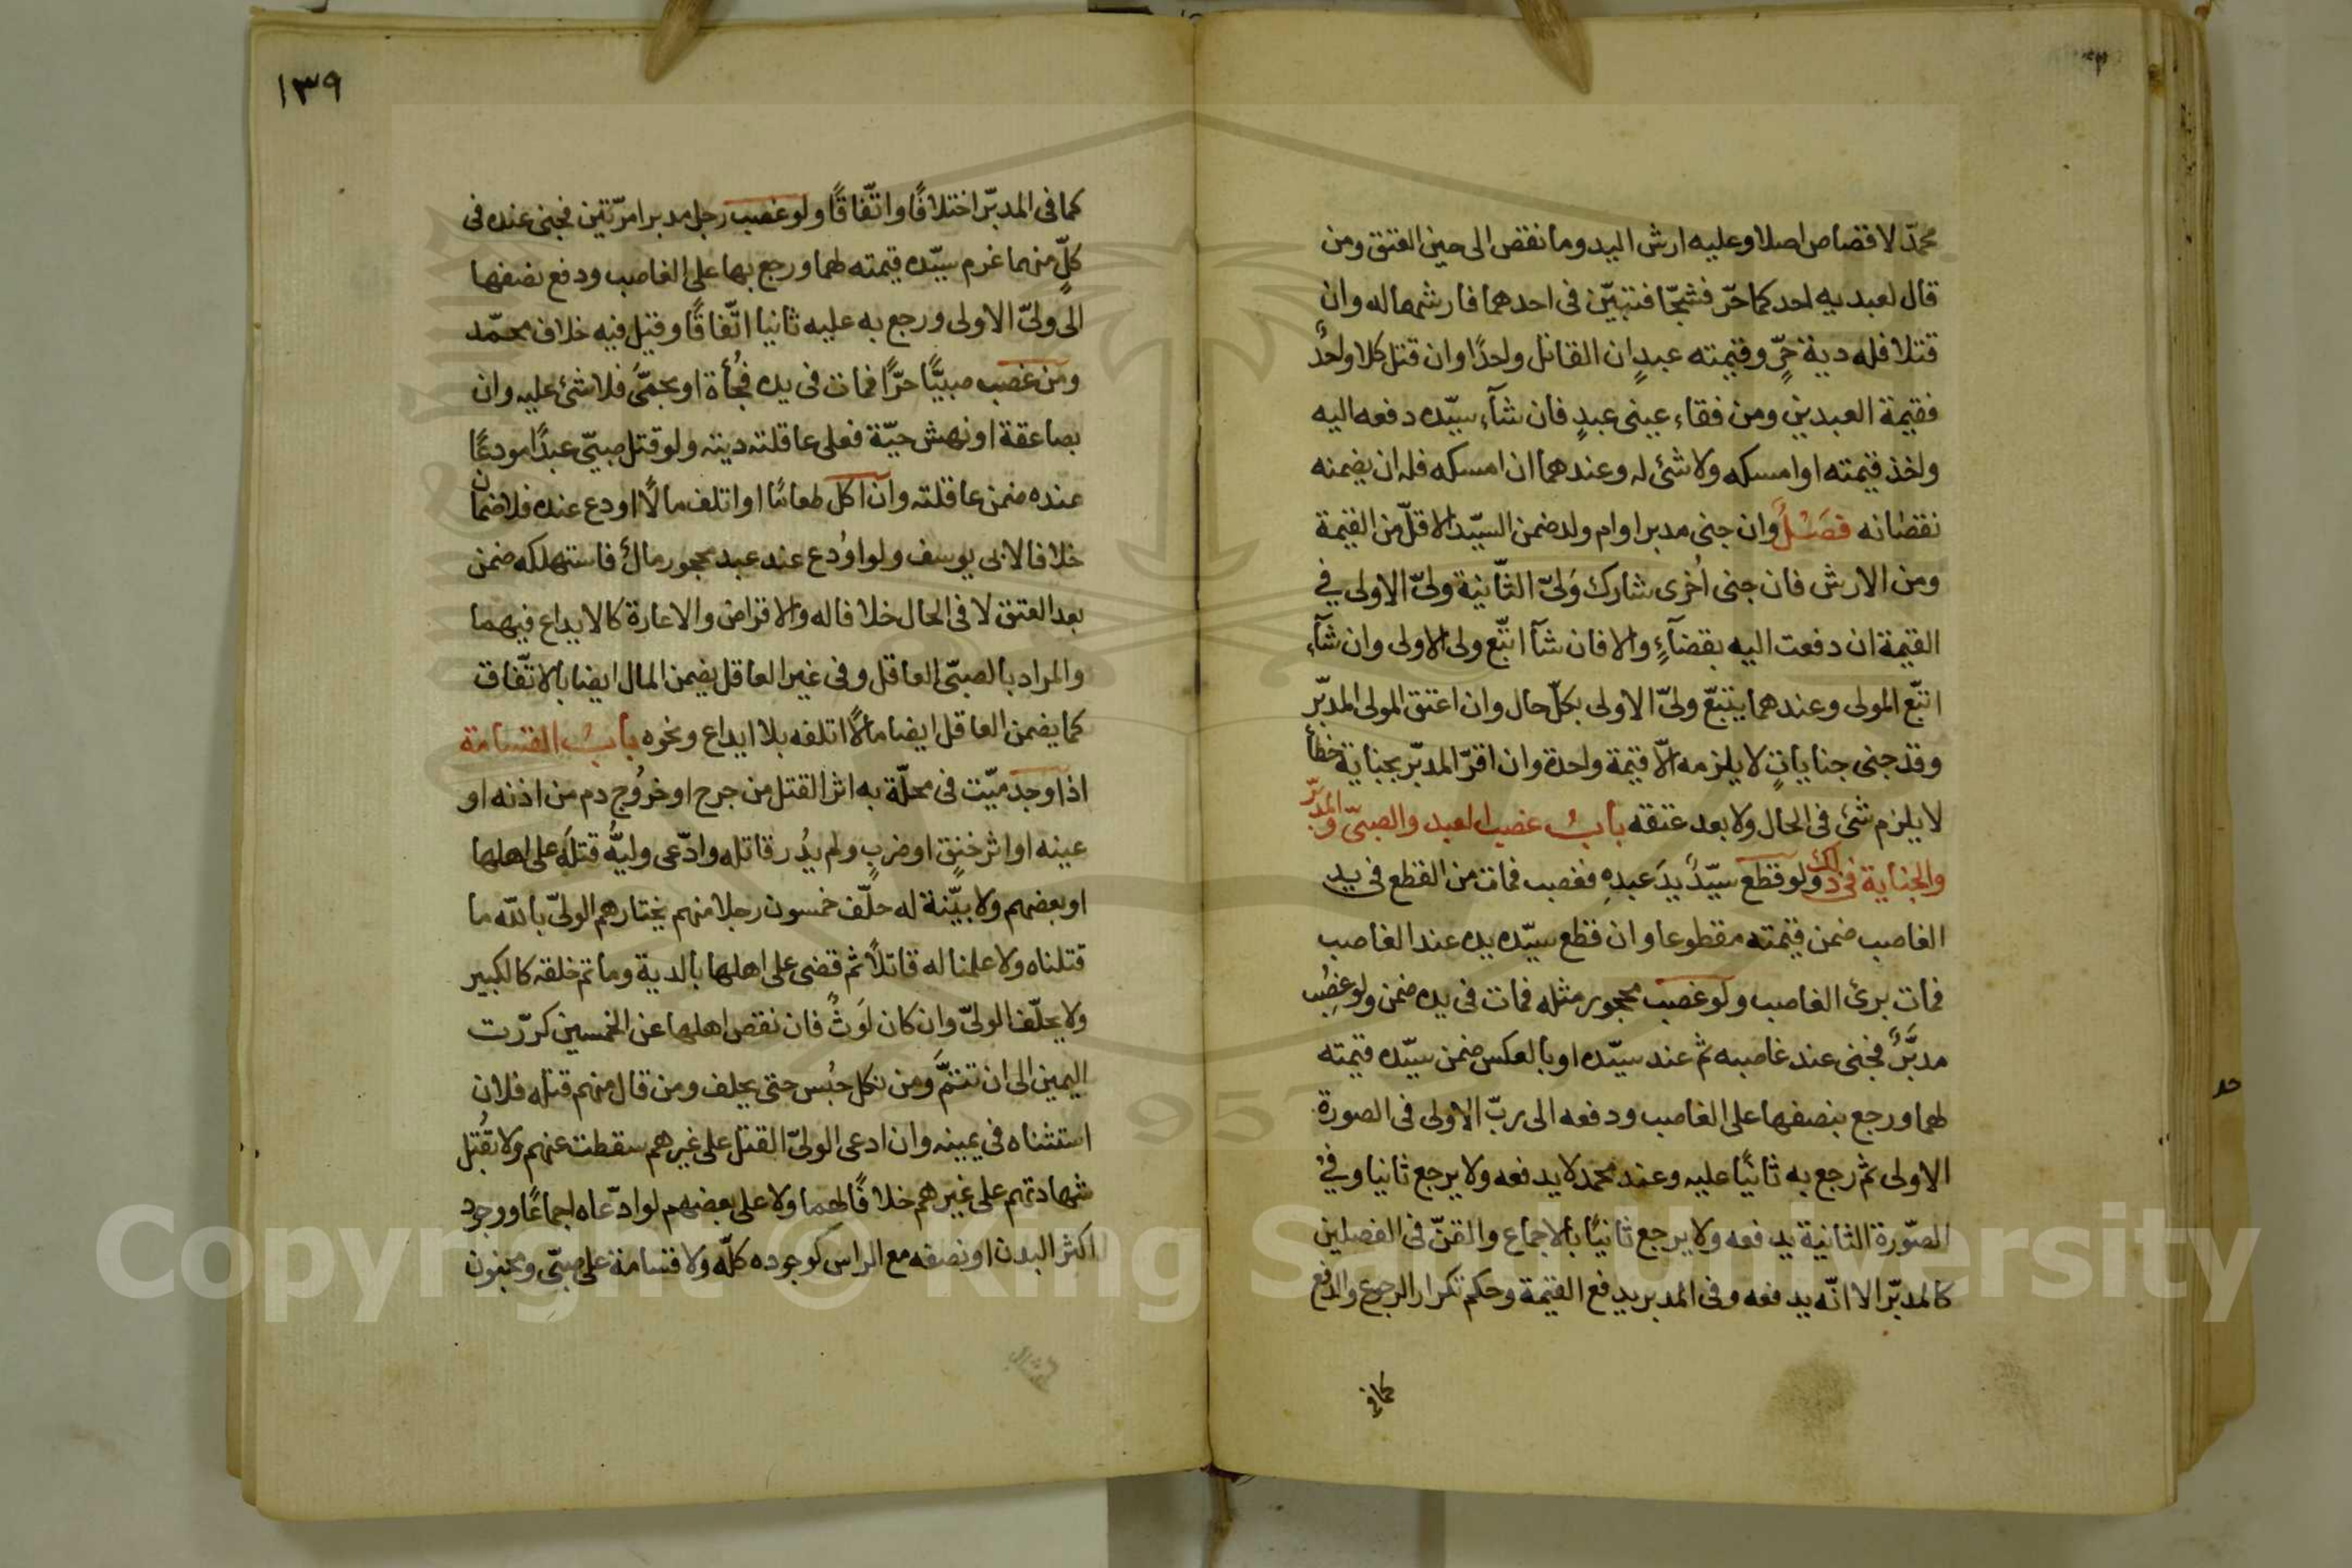 محمّد لا قصاص اصلا وعليه ارش اليد وما نقص الى حين العتق ومن
قال لعبديه احدكما حرّ فشجّا فتبيّن فى احدهما فارشهما له وان
قتلا فله دية حرٍّ وقيمته عبدٍ ان القاتل واحدًا وان قتل كلا واحدٌ
فقيمة العبدين ومن فقاء عينى عبدٍ فان شآء سيّده دفعه اليه
واخذ قيمته او امسكه ولا شئ له وعندهما ان امسكه فله ان يضمنه
نقصانه فصَلٌ وان جنى مدبر او ام ولد ضمن السيّد الاقلّ من القيمة
ومن الارش فان جنى اُخرى شارك وَلىّ الثّانية ولىّ الاولى في
القيمة ان دفعت اليه بقضآءٍ والا فان شآ اتّبع ولى الاولى وان شآء
اتّبع المولى وعندهما يتبّع ولىّ الاولى بكلّ حال وان اعتق المولى المدبّر
وقد جنى جناياتٍ لا يلزمه الّا قيمة واحدة وان اقرّ المدبّر بجناية خطأ
لا يلزم شئ فى الحال ولا بعد عتقه بابُ غصب العبد والصبىّ والمدبّر
والجناية فى ذلك ولو قطع سيّدٌ يدَ عبدِهِ فغصب فمات من القطع فى يد
الغاصب ضمن قيمته مقطوعا وان قطع سيّده يده عند الغاصب
فمات برئ الغاصب ولو غصب محجور مثله فمات فى يده ضمن ولو غصِب
مدبَّرٌ فجنى عند غاصبه ثم عند سيّده او بالعكس ضمن سيّده قيمته
لهما ورجع بنصفها على الغاصب ودفعه الى ربّ الاولى فى الصورة
الاولى ثم رجع به ثانيًا عليه وعند محمد لا يدفعه ولا يرجع ثانيا وفي
الصّورة الثانية يدفعه ولا يرجع ثانيًا بالاجماع والقنّ فى الفصلين
كالمدبّر الا انّه يدفعه وفى المدبر يدفع القيمة وحكم تكرار الرجوع والدفع
كما فى
١٣٩
كما فى المدبّر اختلافًا واتّفاقًا ولو غصب رجل مدبرا مرّتين فجنى عنده فى
كلٍّ منهما غرم سيّده قيمته لهما ورجع بها على الغاصب ودفع نصفها
الى ولىّ الاولى ورجع به عليه ثانيا اتّفاقًا وقيل فيه خلاف محمّد
ومن غصب صبيًّا حرًّا فمات فى يده فُجأة او بحمّى فلا شئ عليه وان
بصاعقة او نهش حيّة فعلى عاقلته ديته ولو قتل صبىّ عبدًا مودعًا
عنده ضمن عاقلته وان اكل طعامًا او اتلف مالًا اودع عنده فلا ضمان
خلافا لابى يوسف ولو اوُدع عند عبد محجور مالٌ فاستهلكه ضمن
بعد العتق لا فى الحال خلافا له والاقراض والاعارة كالايداع فيهما
والمراد بالصبىّ العاقل وفى غير العاقل يضمن المال ايضا بالاتّفاق
كما يضمن العاقل ايضا مالًا اتلفه بلا ايداع ونحوه بابُ القسامة
اذا وجد ميّت فى محلّة به اثر القتل من جرح او خروُج دم من اذنه او
عينه او اثر خنقٍ او ضربٍ ولم يدُر قاتله وادّعى وليُّه قتلَه على اهلها
او بعضهم ولا بيّنة له حلّف خمسون رجلا منهم يختارهم الولىّ بالله ما
قتلناه ولا علمنا له قاتلًا ثم قضى على اهلها بالدية وما تم خلقه كالكبير
ولا يحلّف الولىّ وان كان لَوَثٌ فان نقص اهلها عن الخمسين كرّرت
اليمين الى ان تتمَّ ومن نكل حبُس حتى يحلف ومن قال منهم قتله فلان
استثناه فى يمينه وان ادعى الولىّ القتل على غيرهم سقطت عنهم ولا تقُبل
شهادتهم على غيرهم خلافًا لهما ولا على بعضهم لو ادّعاه اجماعًا ووجود
اكثر البدن او نصفه مع الراس كوجوده كلّه ولا قسامة على صبىّ ومجنون
Copyright © King Saud University